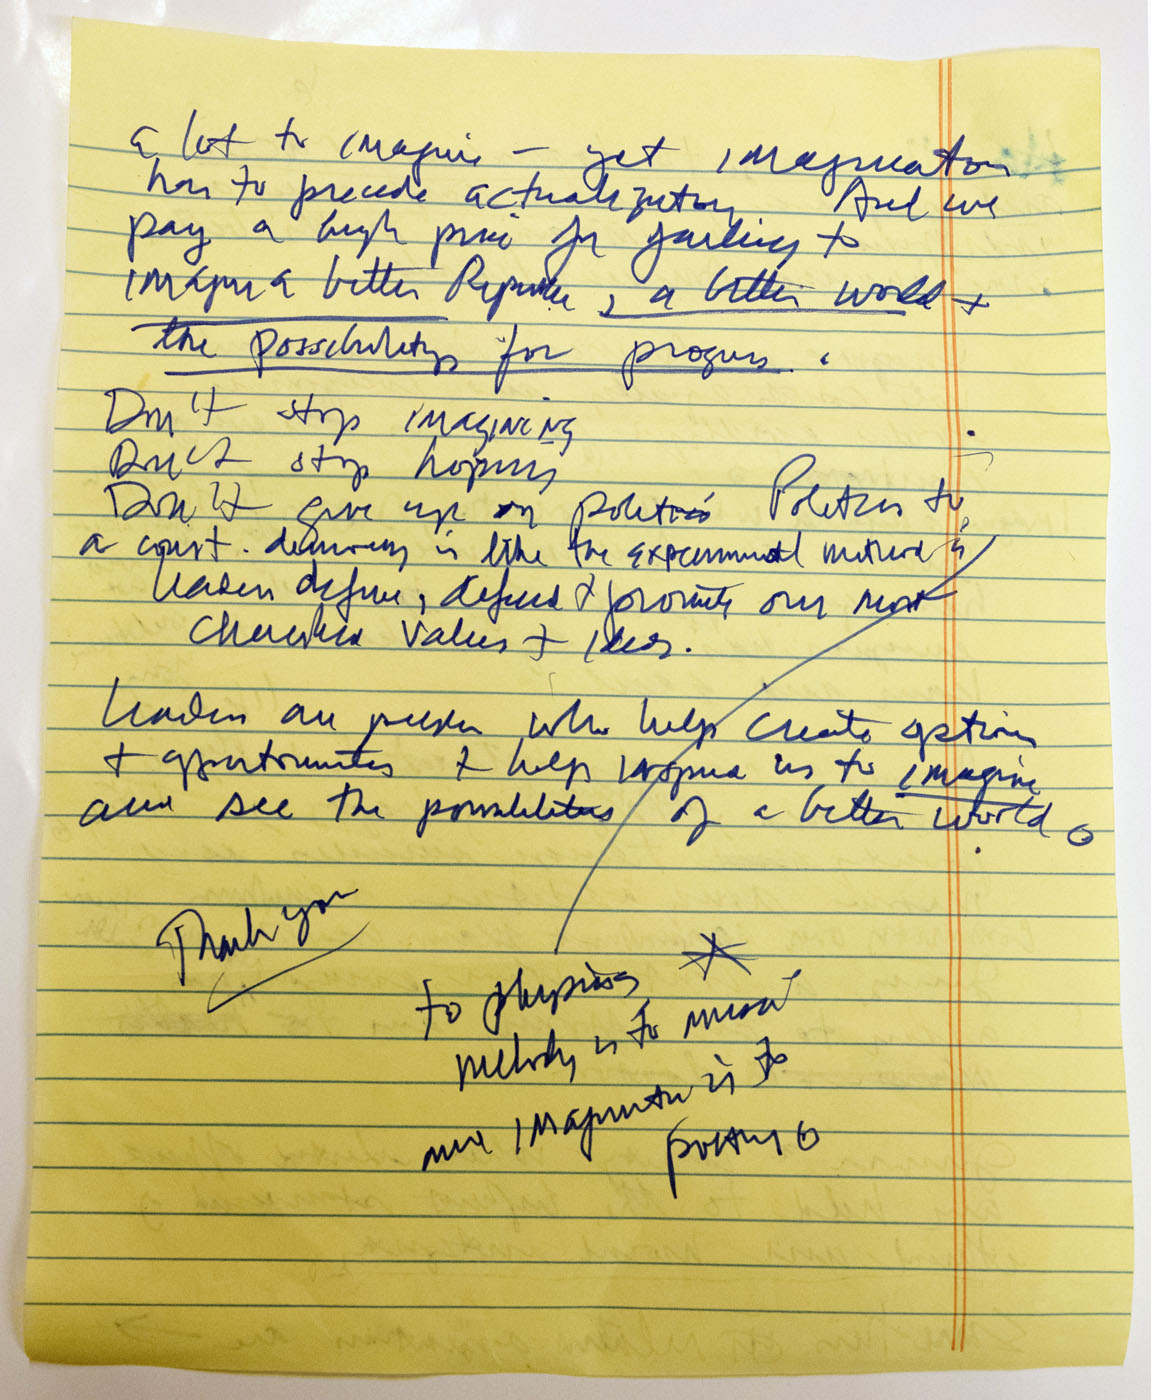 a lot to imagine – yet imagination
has to precede actualization. And we
pay a high price for failing to
imagine a better Republic, a better world +
the possibility for progress.
Don't stop imagining
Don't stop hoping
Don't give up on politics Politics to
a const. democracy is like the experimental method is
Leaders define, defend & promote our most
cherished values + ideas.
Leaders are people who help create options
+ opportunities & help inspire us to imagine
and see the possibilities of a better world.
Thank you
to physics
melody is to music
and imagination is to
poetry